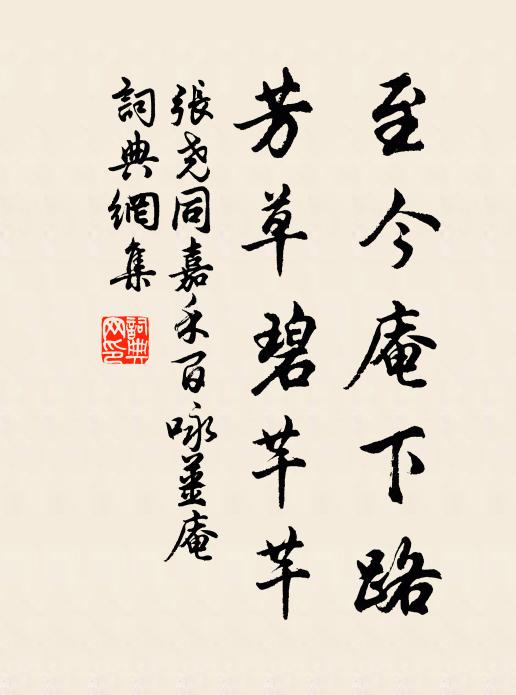 至今庵下路
芳草碧芊芊
張尧同嘉禾百咏薑庵
詞典網集
詞典网印